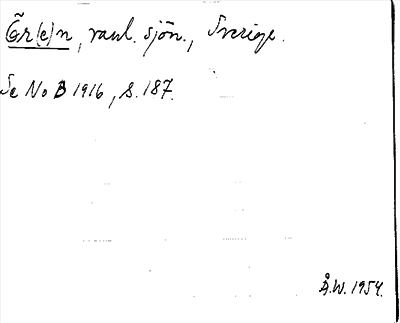 Õr(e)n, vanl. sjön., Sverige.
Se No B 1916, s. 187.
Å.W. 1954.